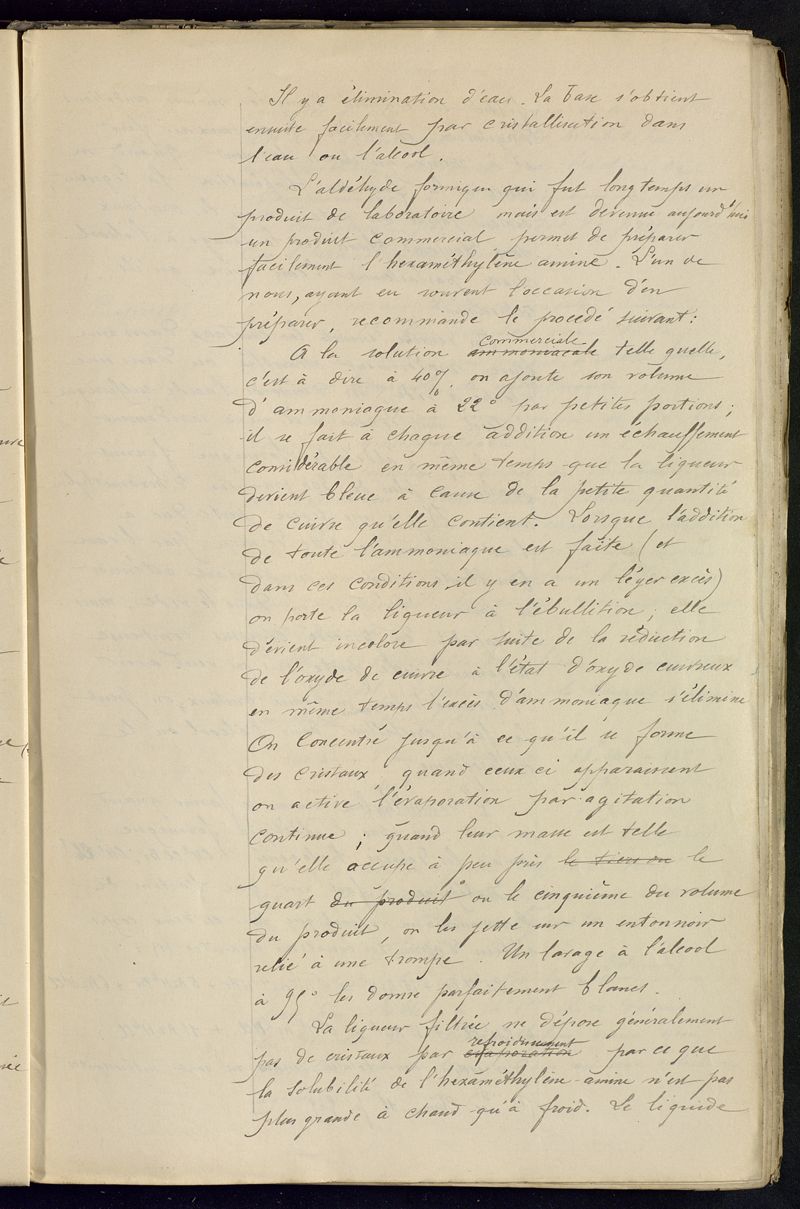 Il y a élimination d'eau. La base s'obtient
ensuite facilement par cristallisation dans
l'eau ou l'alcool.
L'aldéhyde formique qui fut longtemps un
produit de laboratoire mais est devenue aujourd'hui
un produit commercial permet de préparer
facilement l'hexaméthylène amine. L'un de
nous, ayant eu souvent l'occasion d'en
préparer, recommande le procédé suivant:
commerciale
A la solution ammoniacale telle quelle,
c'est à dire à 40%, on ajoute son volume
d'ammoniaque à 22° par petites portions;
il se fait à chaque addition un échauffement
considérable en même temps que la liqueur
devient bleue à cause de la petite quantité
de cuivre qu'elle contient. Lorsque l'addition
de toute l'ammoniaque est faite (et
dans ces conditions il y en a un léger excès)
on porte la liqueur à l'ébullition; elle
dévient incolore par suite de la réduction
de l'oxyde de cuivre à l'état d'oxyde cuivreux
en même temps l'excès d'ammoniaque s'élimine
On concentre jusqu'à ce qu'il se forme
des cristaux quand ceux ci apparaissent
on active l'évaporation par agitation
continue; quand leur masse est telle
qu'elle occupe à peu près le tiers ou le
quart du produit ou le cinquième du volume
du produit, on les jette sur un entonnoir
relié à une trompe. Un lavage à l'alcool
à 95° les donne parfaitement blancs.
La liqueur filtrée ne dépose généralement
refroidissement
pas de cristaux par évaporation parce que
la solubilité de l'hexaméthylène-amine n'est pas
plus grande à chaud qu'à froid. Le liquide